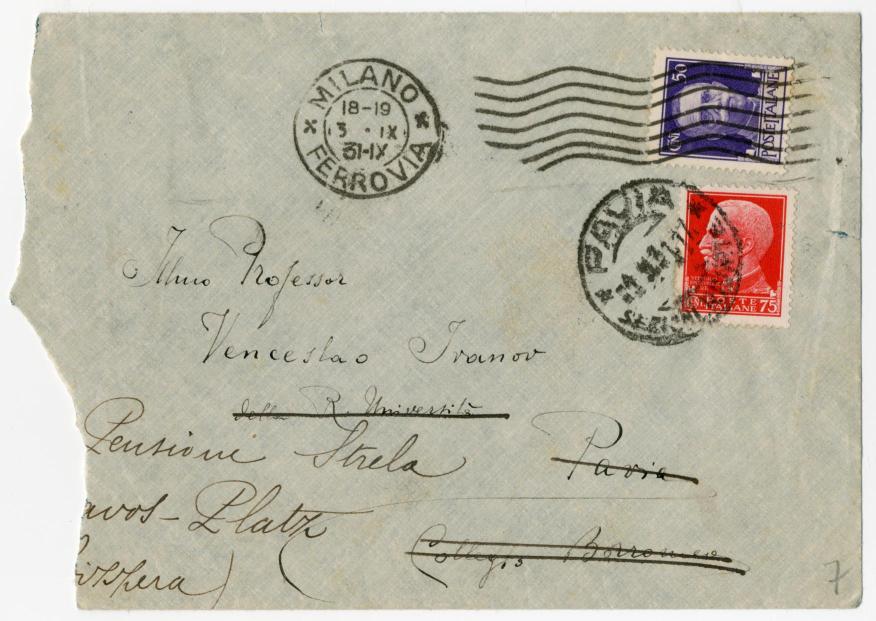 MILANO
18-19
3 · IX
31-IX
FERROVIA
50
POSTE ITALIANE
PAVIA
POSTE
ITALIANE 75
Illmo Professor
Venceslao Ivanov
della R. Università
Pensione Strela
Pavia
avos-Platz
Collegio Borromeo
vizzera)
7